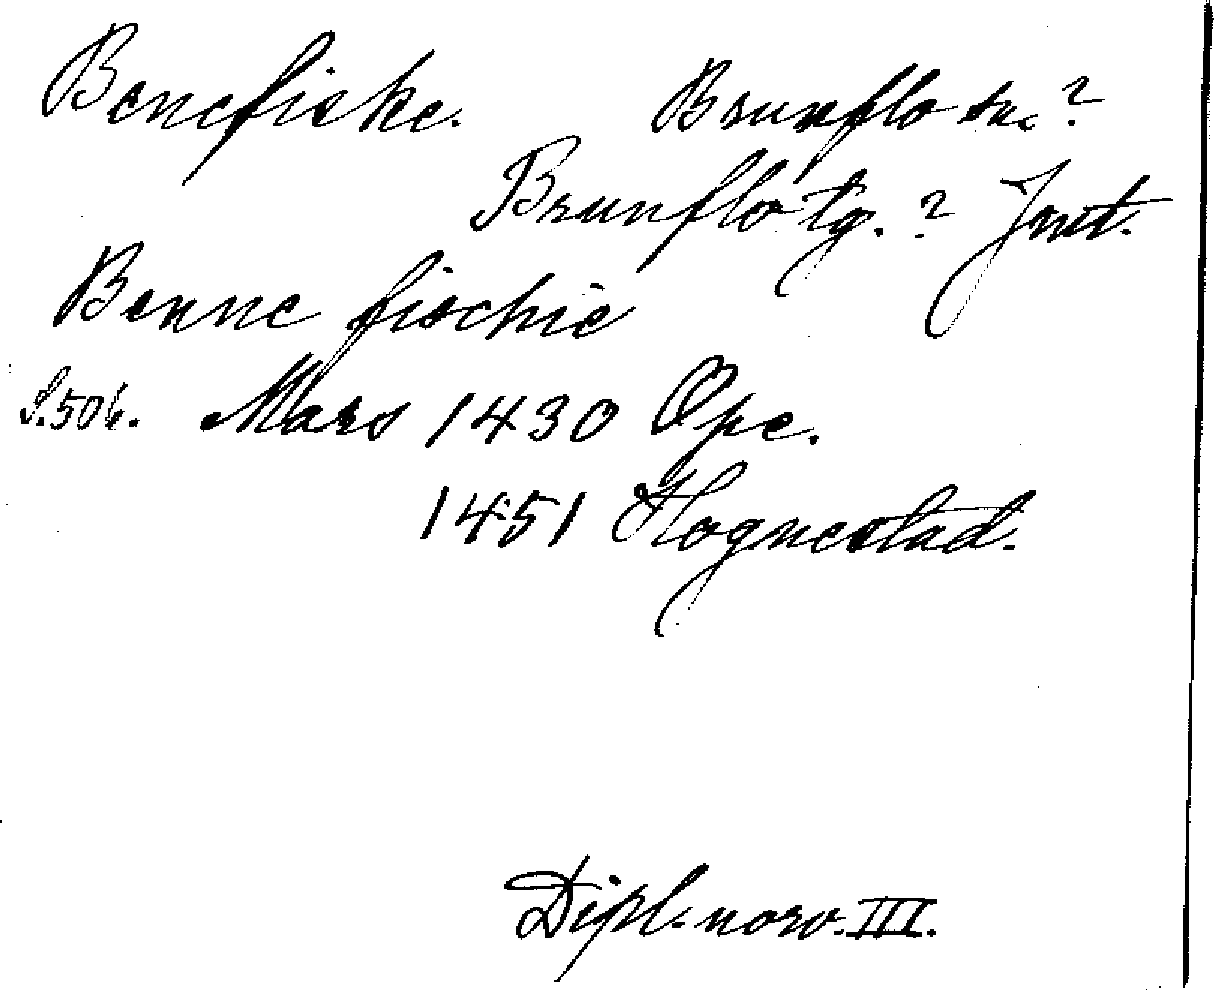 Benefiske. Brunflo sn.?
Brunflo tg.? Jmt.
Benne fischie
S. 506. Mars 1430 Ope.
1451 Hognestad.
Dipl. norv. III.